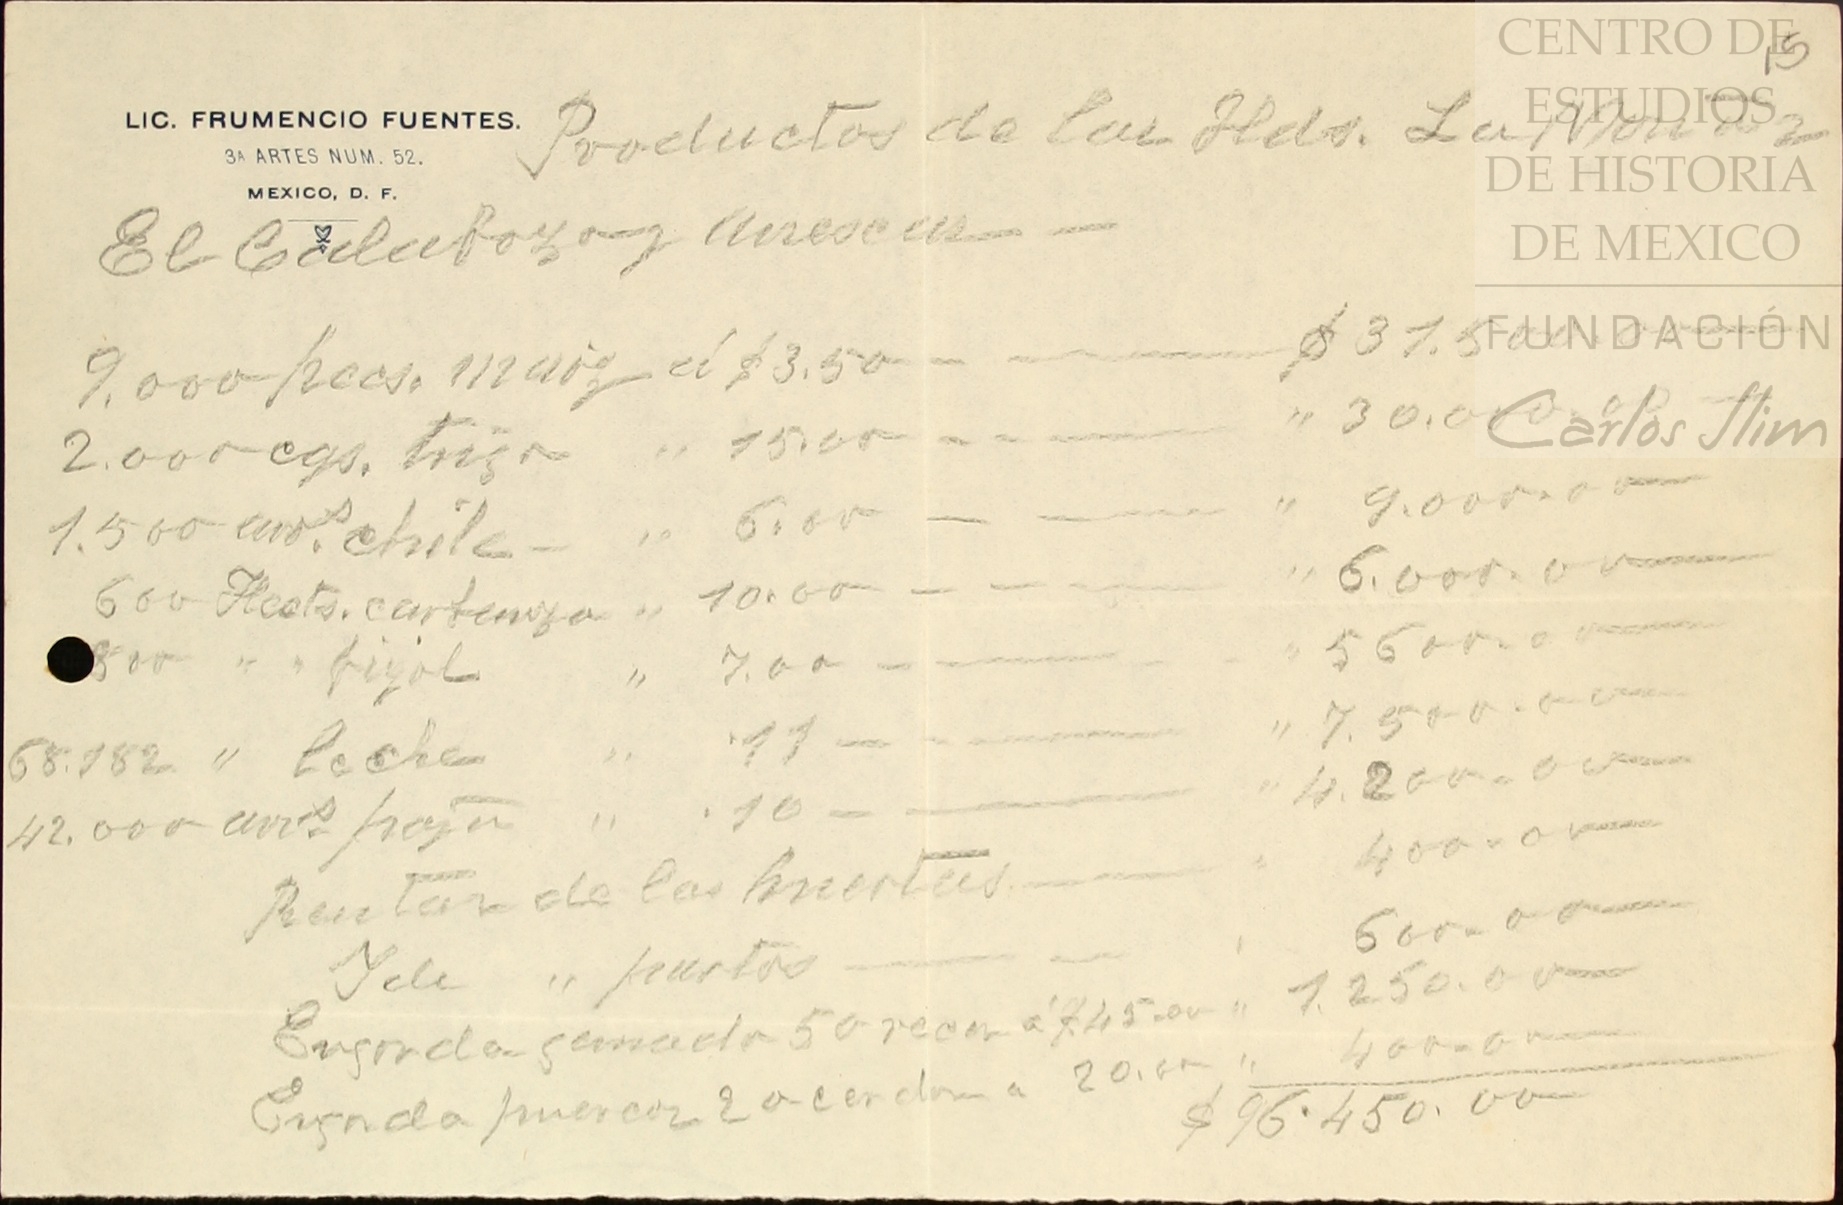 15
LIC. FRUMENCIO FUENTES.
3A ARTES NUM. 52.
MEXICO, D. F.
Productos de las Hdas. La
El Calabozo y anexas —
9.000 hecs. maiz á $3.50 — — $ 31.500.00
2.000 cgs. trigo " 15.00 — — " 30.000.00
1.500 arrs. chile — " 6.00 — — " 9.000.00
600 Hects. garbanzo " 10.00 — — " 6.000.00
800 " " frijol " 7.00 — — " 5600.00
68.182 " leche " .11 — — " 7.500.00
42.000 arrs. paja " .10 — — " 4.200.00
Rentas de las huertas — " 400.00
Id " pastos — — " 600.00
Engorda ganado 50 reces á $45.00 " 1.250.00
Engorda puercos 20 cerdos a 20.00 " 400.00
$ 96.450.00
CENTRO DE
ESTUDIOS
DE HISTORIA
DE MEXICO
FUNDACIÓN
Carlos Slim